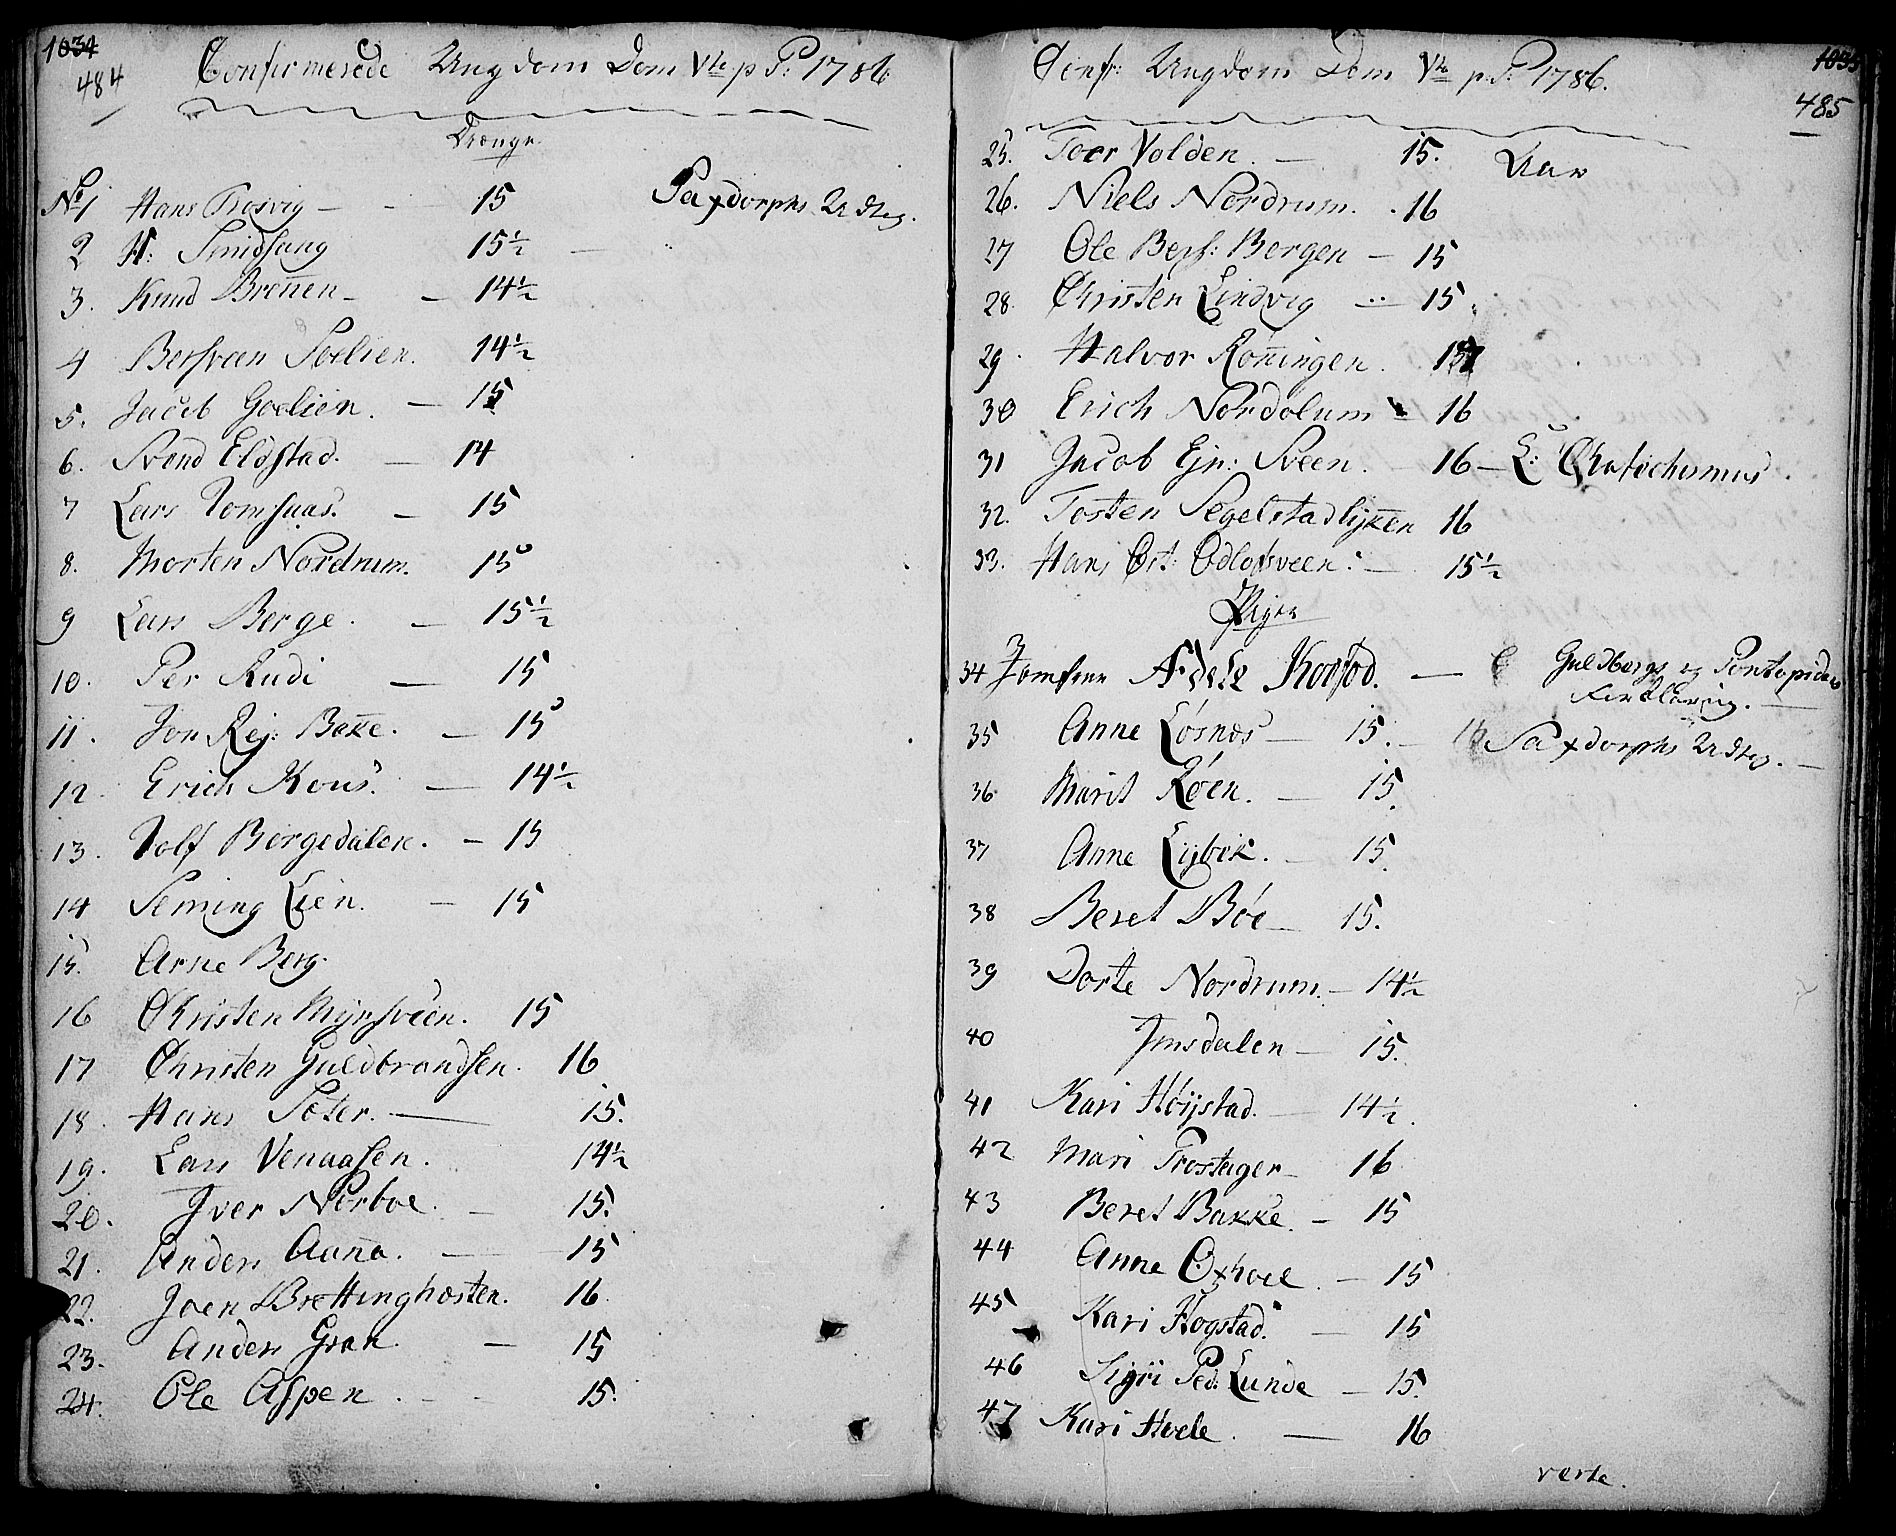 1034
484
Confirmerede Ungdom Dom Vte p P: 1786
Drenge
No 1 Hans Rosvig — - 15 Saxdorphs Udtog.
2 H: Smidsang 15½ —
3. Knud Breñen - - 14½
4 Bersvæn Soelien. 14½
5. Jacob Goelien. — 15
6. Svend Eldstad. — 14
7 Lars Tomsaas. — 15
8. Morten Nordrum. 15
9 Lars Berge. — 15½
10. Per Rudi — 15
11. Jon Rej: Bakke. — 15
12. Erich Kous. — 14½
13. Rolf Borgedalen. — 15
14 Seming Lien. - 15
15. Arne Berg.
16 Christen Myrsveen. 15
17 Christen Guldbrandsen. 16
18. Hans Sæter. — 15.
19. Lars Venaasen. 14½
20. Iver Norboe. - 15.
21. Anders Auña. — 15
22. Joen Brettinghosten. 16
23. Anders Gran. — 15
24. Ole Aspen. - - 15.
1035
485
Conf: Ungdom Dom Vte p. P: 1786.
25. Toer Volden. — 15. Aar
26. Niels Nordrum. . 16
27 Ole Bers: Borgen — 15
28. Christen Lindvig — 15.
29. Halvor Rönningen. 15
30 Erich Nordolum — 16
31 Jacob Ejn: Sveen. 16 — L: Chatechismus.
32. Tosten Segelstadlykken 16
33. Hans Ost: Odlofsveen. — 15½
Piger
34 Jomfrue Adele Koefod. — Guldbergs og Pontopidans
Forklaring. —
35 Anne Løsnes — 15. — Saxdorphs Udtog. —
36 Marit Røen. — 15.
37 Anne Lijbek. — 15.
38 Beret Böe — 15.
39 Dorte Nordrum. — 14½
40 Imsdalen — 15.
41 Kari Höijstad. — 14½.
42 Mari Trostager — 16
43 Beret Bakke. — 15
44 Anne Oxhoel. — 15
45 Kari Kogstad. — 15
46 Sigri Ped: Lunde — 15.
47 Kari Hoele. — 16
verte.